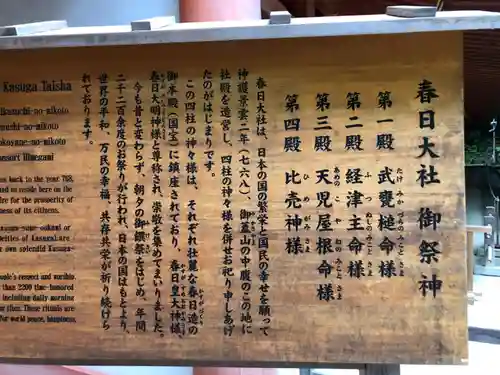 春日大社 御祭神
第一殿 武甕槌命様
たけみかづちのみことさま
第二殿 経津主命様
ふつぬしのみことさま
第三殿 天児屋根命様
あめのこやねのみことさま
第四殿 比売神様
ひめがみさま
春日大社は、日本の国の繁栄と国民の幸せを願って
神護景雲二年(七六八)、御蓋山の中腹のこの地に
社殿を造営し、四柱の神々様を併せお祀り申しあげ
たのがはじまりです。
この四柱の神々様は、それぞれ壮麗な春日造の
御本殿(国宝)に鎮座されており、春日皇大神様、
春日大明神様と尊称され、崇敬を集めてまいりました。
今も昔と変わらず、朝夕の御饌奉をはじめ、年間
二千二百余度のお祭りが行われ、日本の国はもとより、
世界の平和、万民の幸福、共存共栄が祈り続けら
れております。
Kasuga Taisha
Ikazuchi-no-mikoto
nushi-no-mikoto
okoyane-no-mikoto
ansort Himegami
s back to the year 768,
nd to reside here on the
re for the prosperity of
ness of its citizens.
eities of Kasuga) are
own splendid Kasuga-
ople's respect and worship
than 2200 time-honored
including daily morning
day. These rituals are
for world peace, happiness,